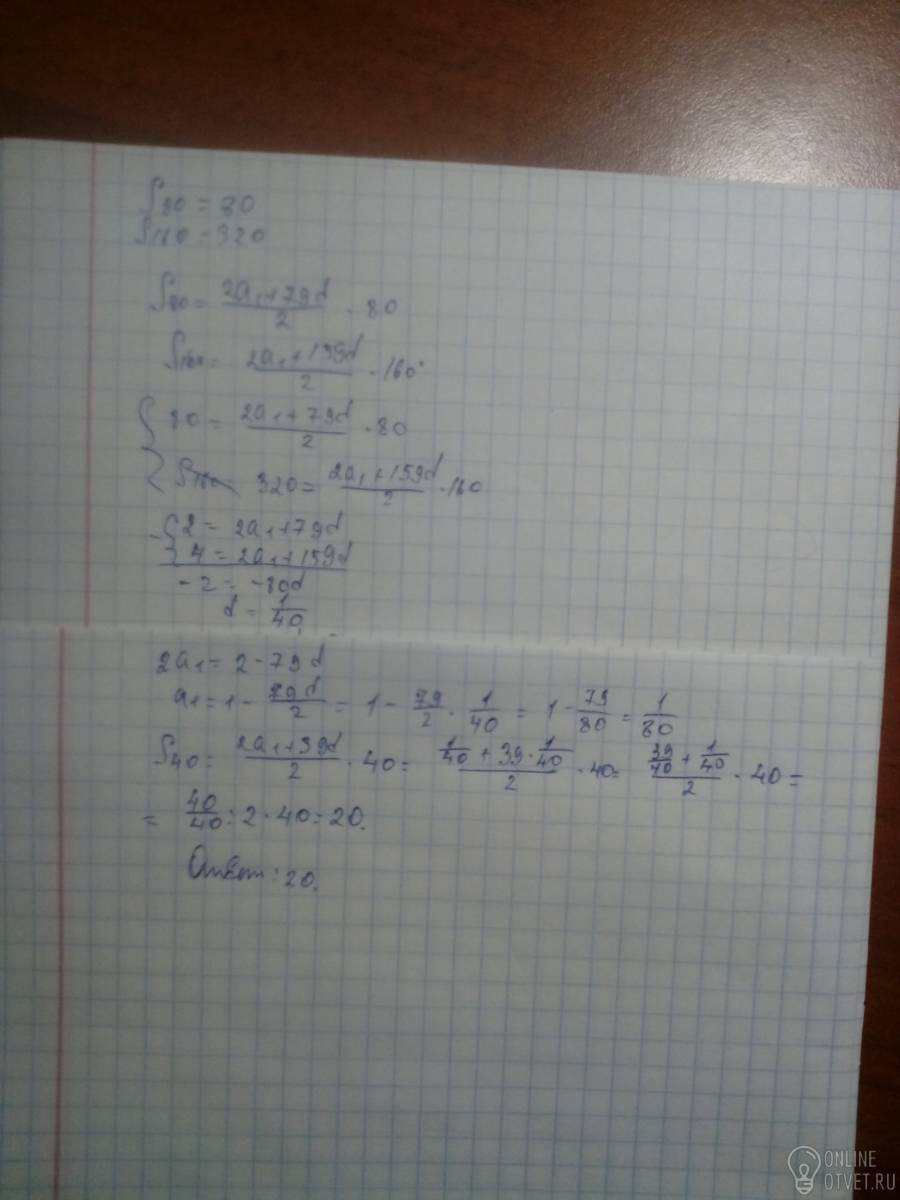 S80 = 80
S160 = 320
S80 = (2a1+79d)/2 · 80
S160 = (2a1+159d)/2 · 160
{ 80 = (2a1+79d)/2 · 80
320 = (2a1+159d)/2 · 160
-{ 2 = 2a1+79d
4 = 2a1+159d
-2 = -80d
d = 1/40
2a1 = 2-79d
a1 = 1 - 79d/2 = 1 - 79/2 · 1/40 = 1 - 79/80 = 1/80
S40 = (2a1+39d)/2 · 40 = (1/40 + 39 · 1/40)/2 · 40 = (39/40 + 1/40)/2 · 40 =
= 40/40 : 2 · 40 = 20.
Ответ: 20.
ONLINE
OTVET.RU